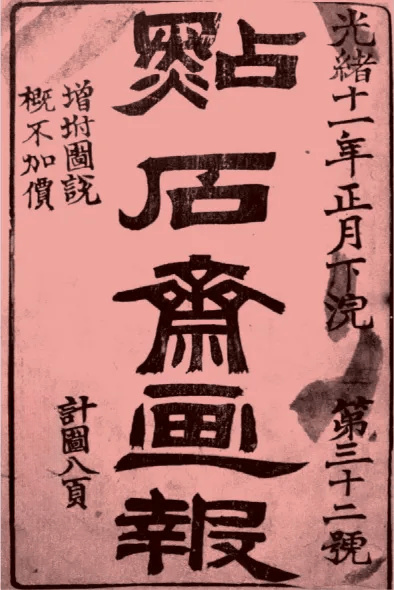 光緒十一年正月下浣 第三十二號
點石齋画報
增坿圖說
概不加價
計圖八頁